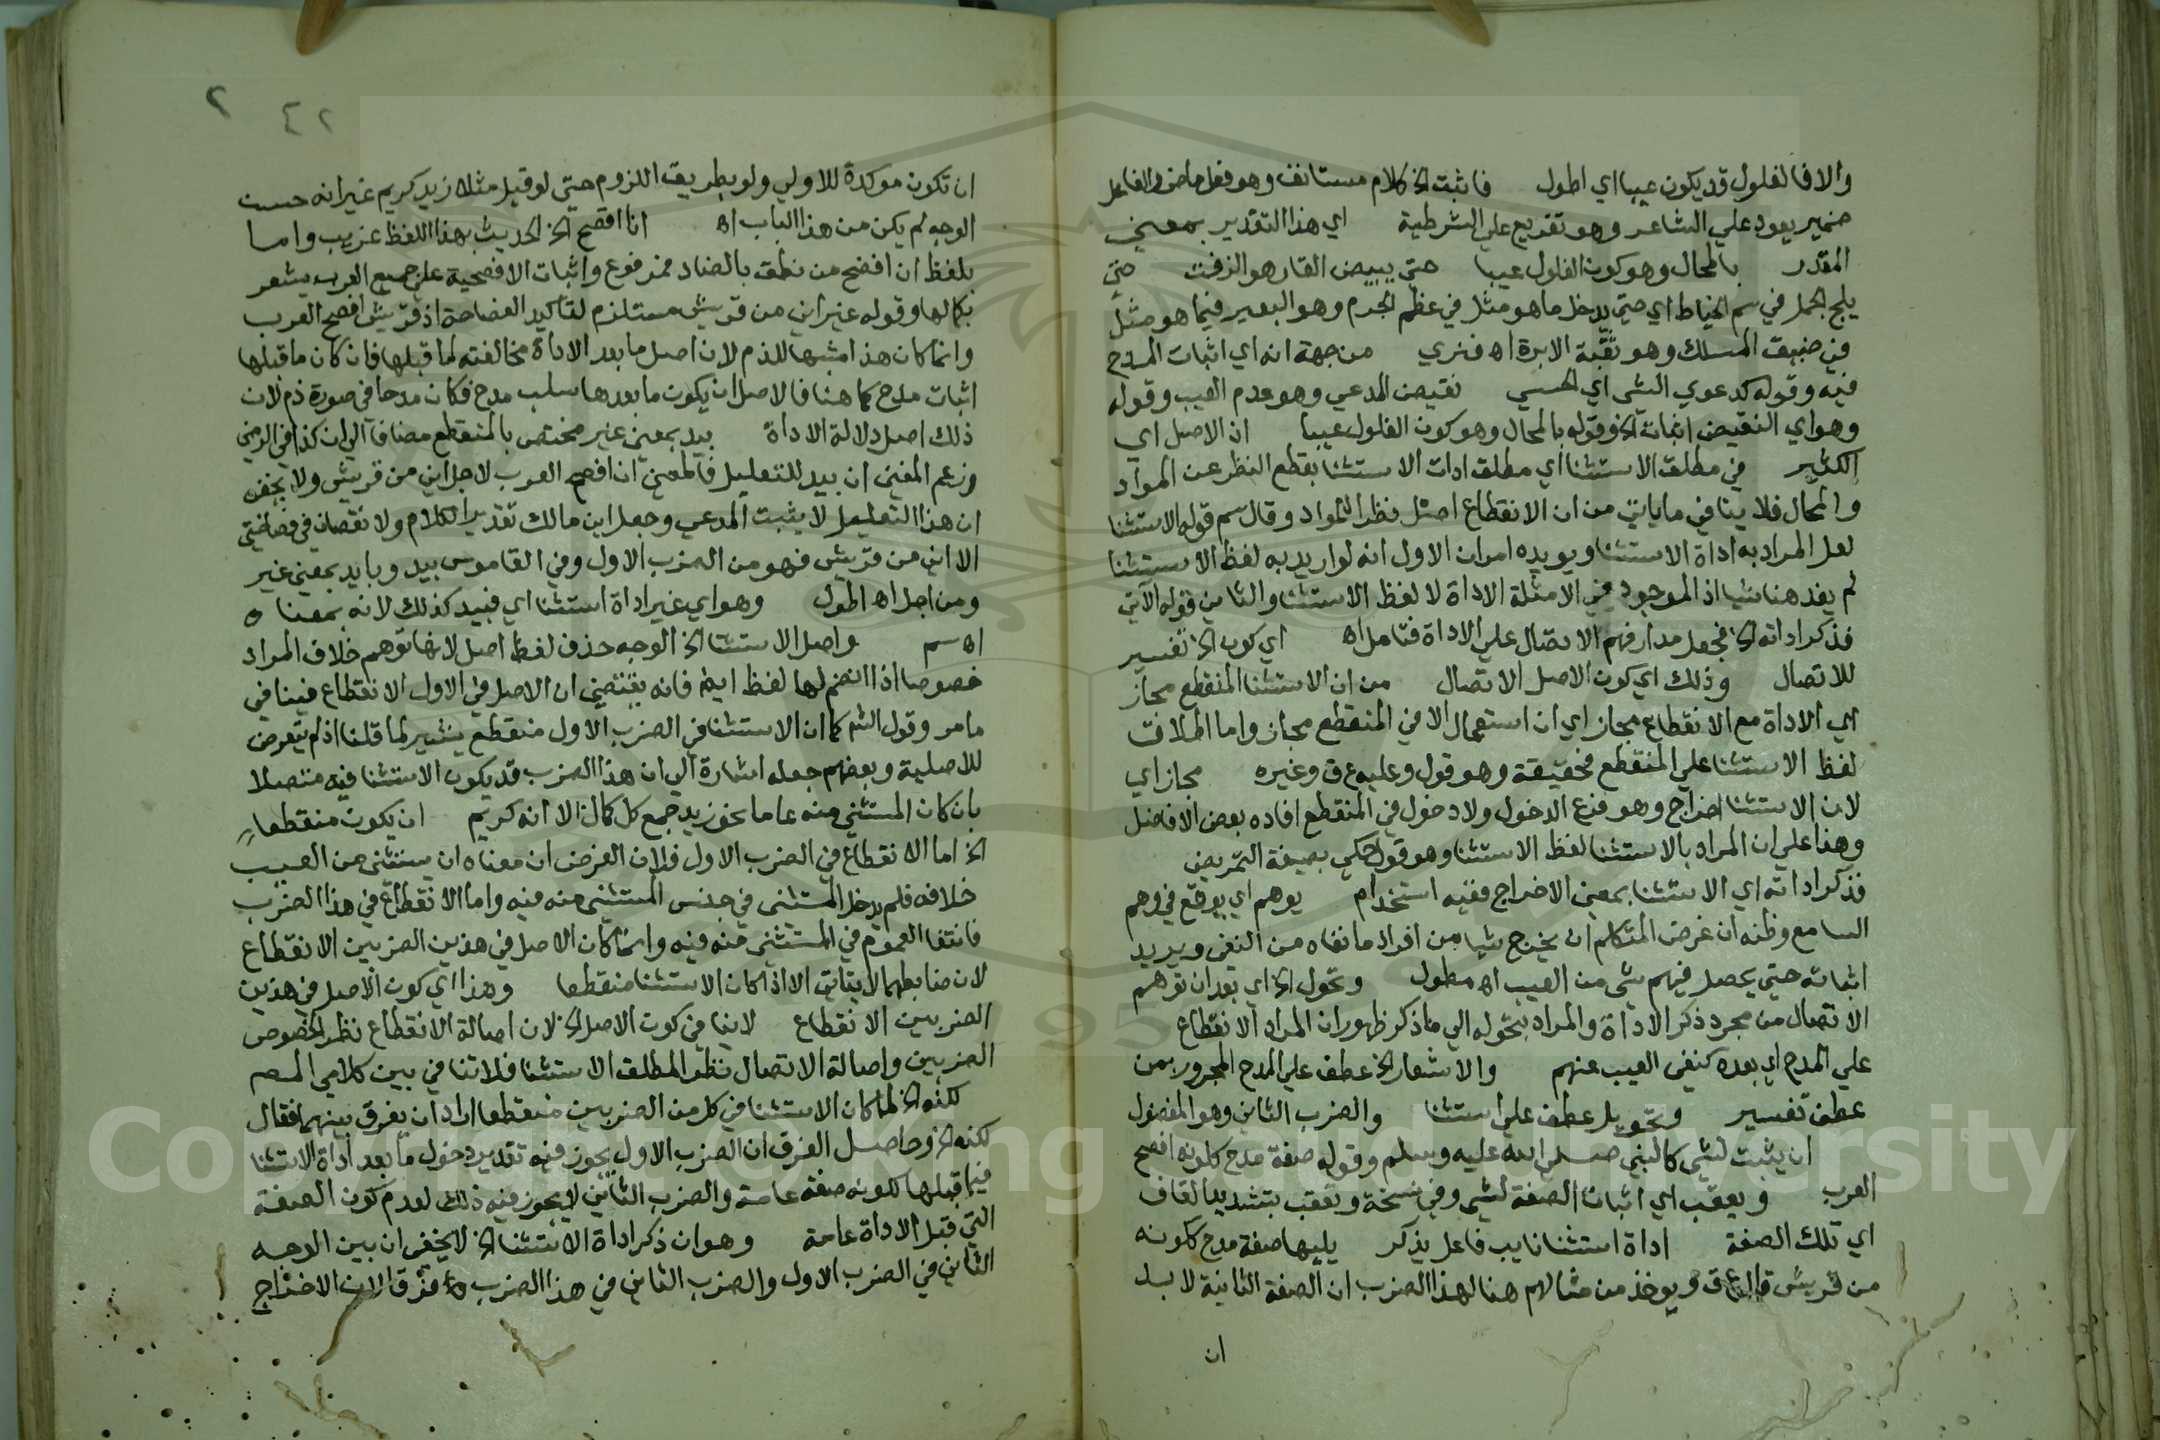 والا فالفلول قد يكون عيبا اي اطول فاثبت الخ كلام مستانف وهو فعل ماض والفاعل
ضمير يعود علي الشاعر وهو تفريع علي الشرطية اي هذا التقدير بمعني
المقدر بالمحال وهو كون الفلول عيبا حتي يبيض القار هو الزفت حتي
يلج الجمل في سم الخياط اي حتي يدخل ما هو مثل في عظم الجرم وهو البعير فيما هو مثل
في ضيق المسلك وهو ثقبة الابرة اه فنري من جهة انه اي اثبات المدح
فيه وقوله كدعوي الشي اي الحسي نقيض المدعي وهو عدم العيب وقوله
وهو اي النقيض اثبات الخ وقوله بالمحال وهو كون الفلول عيبا ان الاصل اي
الكثير في مطلق الاستثنا اي مطلق ادات الاستثنا بقطع النظر عن المواد
والمحال فلا ينافي ما ياتي من ان الانقطاع اصل نظرا للمواد وقال سم قوله الاستثنا
لعل المراد به اداة الاستثنا ويويده امران الاول انه لو اريد به لفظ الاستثنا
لم يفد هنا شيا اذ الموجود في الامثلة الاداة لا لفظ الاستثنا والثاني قوله الآتي
فذكر اداته الخ فجعل مدار فهم الاتصال علي الاداة فتامل اه اي كون الخ تفسير
للاتصال وذلك اي كون الاصل الاتصال من ان الاستثنا المنقطع مجاز
اي الاداة مع الانقطاع مجاز اي ان استعمال الا في المنقطع مجاز واما اطلاق
لفظ الاستثنا علي المنقطع فحقيقة وهو قول وعليه ع ق وغيره مجاز اي
لان الاستثنا اخراج وهو فرع الدخول ولا دخول في المنقطع افاده بعض الافاضل
وهذا علي ان المراد بالاستثنا لفظ الاستثنا وهو قول حكي بصيغة التمريض
فذكر اداته اي الاستثنا بمعني الاخراج ففيه استخدام يوهم اي يوقع في وهم
السامع وظنه ان غرض المتكلم ان يخرج شيا من افراد ما نفاه من النفي ويريد
اثباته حتي يحصل فيهم شي من العيب اه مطول وتحول الخ اي بعد ان توهم
الاتصال من مجرد ذكر الاداة والمراد بتحوله الي ما ذكر ظهور ان المراد الانقطاع
علي المدح اي بعده كنفي العيب عنهم والاشعار الخ عطف علي المدح المجرور بمن
عطف تفسير وتحويل عطف علي استثنا والضرب الثاني وهو المفضول
ان يثبت لشي كالنبي صلي الله عليه وسلم وقوله صفة مدح كلونه افصح
العرب ويعقب اي اثبات الصفة لشي وفي نسخة وتعقب بتشديد القاف
اي تلك الصفة اداة استثنا نايب فاعل يذكر يليها صفة مدح ككونه
من قريش قال ع ق ويوخذ من مثالهم هنا لهذا الضرب ان الصفة الثانية لا بد
ان
٤٢ ٢
ان تكون موكدة للاولي ولو بطريق اللزوم حتي لو قيل مثلا زيد كريم غير انه حسن
الوجه لم يكن من هذا الباب اه انا افصح الخ الحديث بهذا اللفظ غريب واما
بلفظ ان افصح من نطق بالضاد فمرفوع واثبات الافصحية علي جميع العرب يشعر
بكمالها وقوله غير اني من قريش مستلزم لتاكيد الفصاحة اذ قريش افصح العرب
وانما كان هذا مشبها للذم لان اصل ما بعد الاداة مخالفته لما قبلها فان كان ما قبلها
اثبات مدح كما هنا فالاصل ان يكون ما بعدها سلب مدح فكان مدحا في صورة ذم لان
ذلك اصل دلالة الاداة بيد بمعني غير مختص بالمنقطع مضافا الي ان كذا في الرضي
وزعم المغني ان بيد للتعليل فالمعني انا افصح العرب لاجل اني من قريش ولا يخفي
ان هذا التعليل لا يثبت المدعي وجعل ابن مالك تقدير الكلام ولا نقصان في فصاحتي
الا اني من قريش فهو من الضرب الاول وفي القاموس بيد وبايد بمعني غير
ومن اجل اه اطول وهو اي غير اداة استثنا اي فبيد كذلك لانه بمعناه
اه سم واصل الاستثنا الخ الوجه حذف لفظ اصل لايهام توهم خلاف المراد
خصوصا اذا انضم لها لفظ ايضا فانه يقتضي ان الاصل في الاول الانقطاع فينافي
ما مر وقول الش كما ان الاستثنا في الضرب الاول منقطع يشير لما قلنا اذ لم يتعرض
للاصلية وبعضهم جعله اشارة الي ان هذا الضرب قد يكون الاستثنا فيه متصلا
بان كان المستثني منه عاما نحو زيد جمع كل كمال الا انه كريم ان يكون منقطعا
الخ اما الانقطاع في الضرب الاول فلان الغرض ان معناه ان يستثني من العيب
خلافه فلم يدخل المستثني في جنس المستثني منه فيه واما الانقطاع في هذا الضرب
فانتفا العموم في المستثني منه فيه وانما كان الاصل في هذين الضربين الانقطاع
لان ضابطهما لا يتاتي الا اذا كان الاستثنا منقطعا وهذا اي كون الاصل في هذين
الضربين الانقطاع لا ينافي كون الاصل الخ لان اصالة الانقطاع نظرا لخصوص
الضربين واصالة الاتصال نظر المطلق الاستثنا فلا تنافي بين كلامي المصم
لكنه الخ لما كان الاستثنا في كل من الضربين منقطعا اراد ان يفرق بينهما فقال
لكنه الخ وحاصل الفرق ان الضرب الاول يجوز فيه تقدير دخول ما بعد اداة الاستثنا
فيما قبلها لكونه صفة عامة والضرب الثاني لا يجوز فيه ذلك لعدم كون الصفة
التي قبل الاداة عامة وهو ان ذكر اداة الاستثنا الخ لا يخفي ان بين الوجه
الثاني في الضرب الاول والضرب الثاني في هذا الضرب فرقا لان الاخراج
Copyright © King Saud University